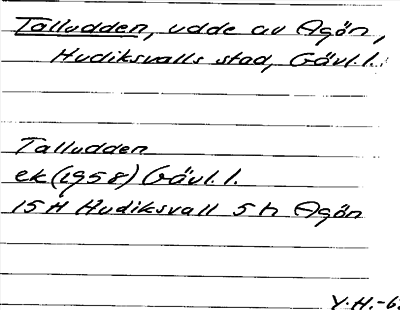 Talludden, udde av Agön,
Hudiksvalls stad, Gävl.l.
Talludden
ek (1958) Gävl.l.
15H Hudiksvall 5h Agön
Y.H.-6